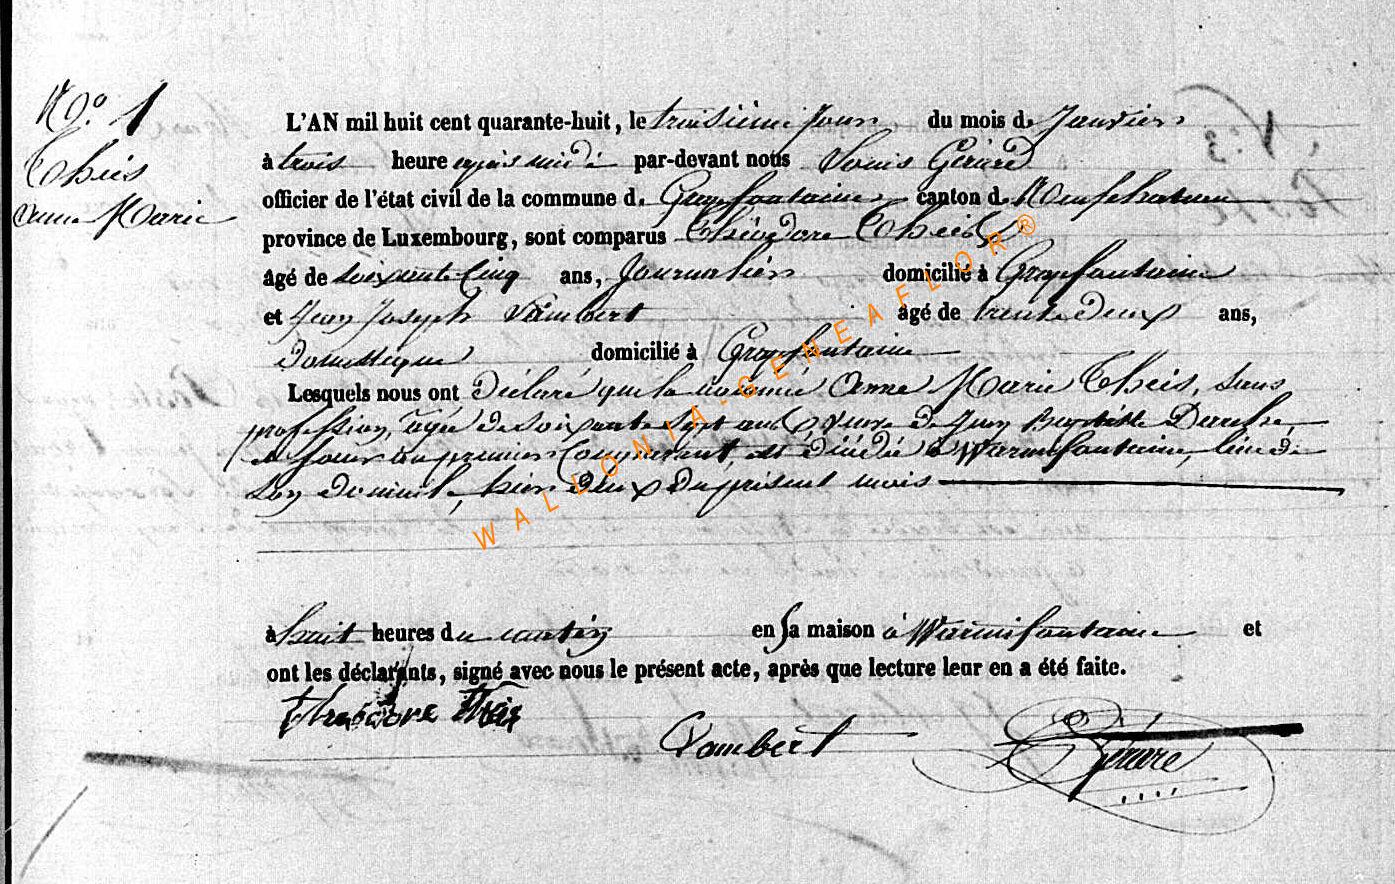 No. 1
Theis
Anne Marie
L'AN mil huit cent quarante-huit, le troisième jour du mois de Janvier
à trois heure après midi par-devant nous Louis Gérard
officier de l'état civil de la commune de Grapfontaine canton de Neufchateau
province de Luxembourg, sont comparus Théodore Theis
âgé de soixante cinq ans, Journalier domicilié à Grapfontaine
et Jean Joseph Lambert âgé de trente deux ans,
Domestique domicilié à Grapfontaine
Lesquels nous ont Déclaré que la nommée Anne Marie Theis, sans
profession, agée de soixante sept ans, veuve de Jean Baptiste
et pour un premier, est décédée à Warmifontaine, lieu de
son domicile, hier deux du présent mois
à huit heures du matin en sa maison à Warmifontaine et
ont les déclarants, signé avec nous le présent acte, après que lecture leur en a été faite.
Theodore Theis
Lambert
Gérard
WALLONIA-GENEAFLOR®